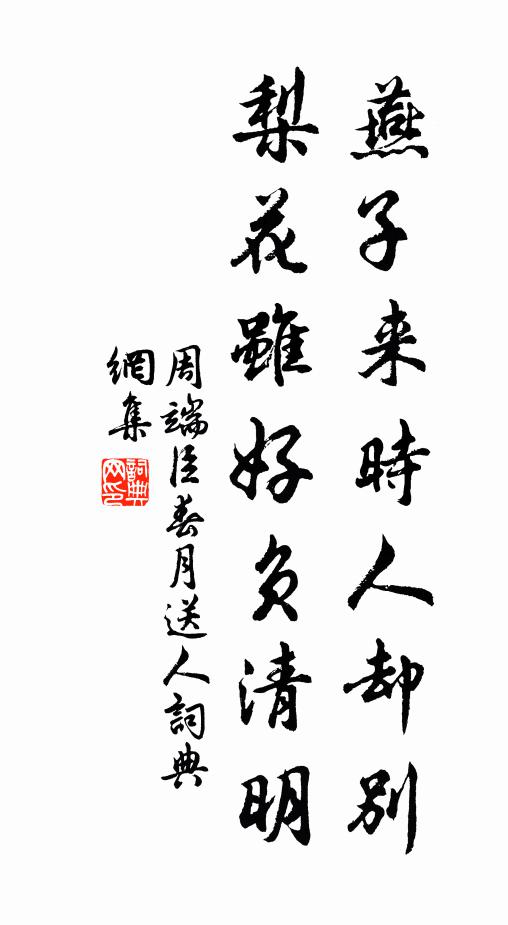 燕子来時人却别
梨花雖好负清明
周端臣春月送人詞典
網集
詞典
网印